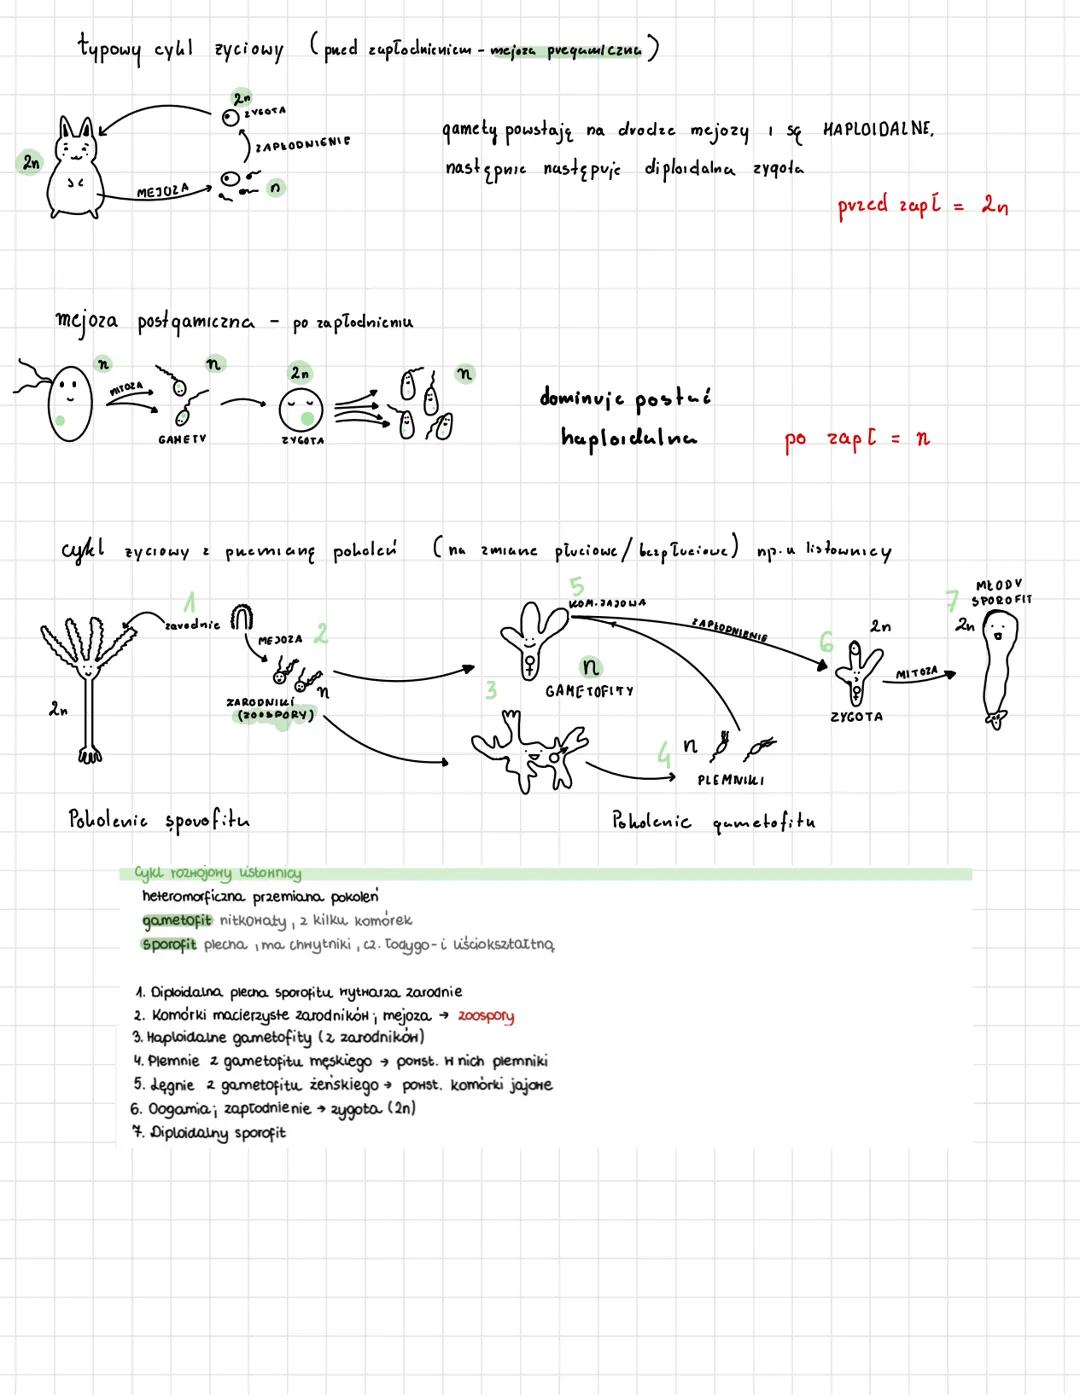 typowy cykl życiowy (przed zapłodnieniem - mejoza pregamiczna)
2n
ZYGOTA
ZAPŁODNIENIE
2n
MEJOZA
n
gamety powstają na drodze mejozy i są HAPLOIDALNE,
następnie następuje diploidalna zygota
przed zapł = 2n
mejoza postgamiczna - po zapłodnieniu
n
MITOZA
n
GAMETY
2n
ZYGOTA
n
dominuje postać
haploidalna
po zapł = n
cykl życiowy z przemianą pokoleń (na zmianę płciowe/bezpłciowe) np. u listownicy
1
zarodnie
MEJOZA 2
2n
n
ZARODNIKI
(ZOOSPORY)
3
5
KOM. JAJOWA
n
GAMETOFITY
ZAPŁODNIENIE
4 n
PLEMNIKI
6
2n
ZYGOTA
MITOZA
7 MŁODY
SPOROFIT
2n
Pokolenie sporofitu
Pokolenie gametofitu
Cykl rozwojowy listownicy
heteromorficzna przemiana pokoleń
gametofit nitkowaty, z kilku komórek
sporofit plecha, ma chwytniki, cz. łodygo- i liściokształtną
1. Diploidalna plecha sporofitu wytwarza zarodnie
2. Komórki macierzyste zarodników; mejoza → zoospory
3. Haploidalne gametofity (z zarodników)
4. Plemnie z gametofitu męskiego → powst. w nich plemniki
5. Lęgnie z gametofitu żeńskiego → powst. komórki jajowe
6. Oogamia; zapłodnienie → zygota (2n)
7. Diploidalny sporofit